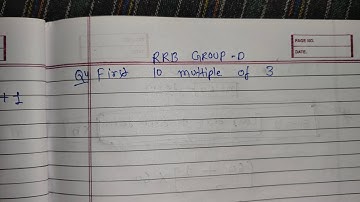 PAGE NO.
DATE:
RRB GROUP-D
Q4 First 10 multiple of 3
+ 1